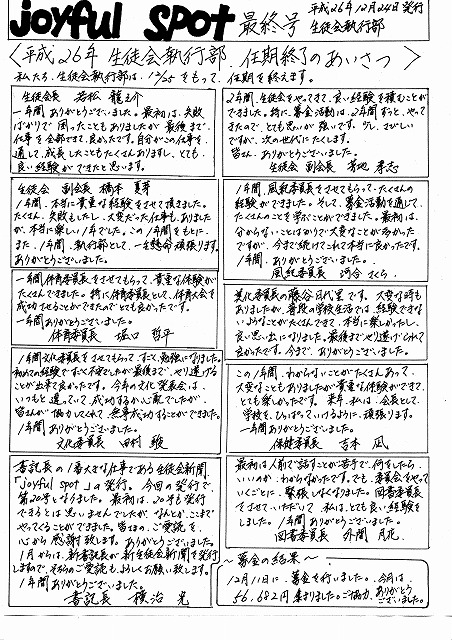 joyful spot 最終号
平成26年12月24日発行
生徒会執行部
<平成26年 生徒会執行部 任期終了のあいさつ>
私たち、生徒会執行部は、12/25をもって、任期を終えます。
生徒会長 若松 龍之介
一年間ありがとうございました。最初は、失敗
ばかりで困ったこともありましたが、最後まで、
仕事を全部できて、良かったです。自分がこの仕事を
通して、成長したこともたくさんありますし、とても、
良い経験ができたと思います。
2年間、生徒会をやってきて、良い経験を積むことが
できました。特に、募金活動は、2年間ずっと、やって
きたので、とても思いが強いです。少し、さびしい
ですが、次の世代にたくします。
皆さん、ありがとうございました。
生徒会 副会長 孝志
生徒会 副会長 橋本 夏芽
1年間、本当に貴重な経験をさせて頂きました。
たくさん、失敗もしたし、大変だった仕事も、ありました
が、本当に楽しい1年でした。この1年間をもとに、
また、1年間、執行部として、一生懸命頑張ります。
ありがとうございました。
1年間、風紀委員長をさせてもらって、たくさんの
経験ができました。そして、募金活動を通して、
たくさんのことを学ぶことができました。最初は、
分からないことばかりで大変なことが多かった
ですが、今まで続けてこれて本当に良かったです。
1年間、ありがとうございました。
風紀委員長 河合 さくら
一年間体育委員長をさせてもらって、貴重な体験が
たくさんできました。特に体育委員長として、体育大会を
成功させることができたのでとても良かったです。
一年間ありがとうございました。
体育委員長 堀口 哲平
美化委員長の藤谷 日代里です。大変な時も
ありましたが、普段の学校生活では、経験できな
いようなことがたくさんできて、本当に楽しかったし、
良い思い出になりました。最後までやり遂げられて
良かったです。今まで、ありがとうございました。
1年間文化委員長をさせてもらって、すごく勉強になりました。
初めての経験ですごく不安でしたが最後まで、やり遂げる
ことが出来て良かったです。今年の文化発表会は、
いつもと違っていて、成功するか心配でしたが、
皆さんが協力してくれて、無事成功することができました。
1年間ありがとうございました。
文化委員長 田村 駿
この1年間、わからないことがたくさんあって、
大変なこともありましたが貴重な体験ができて、
とても楽しかったです。来年、私は、会長として、
学校を、ひっぱっていけるように、頑張ります。
一年間ありがとうございました。
保健委員長 吉本 凪
書記長の1番大きな仕事である生徒会新聞
「joyful spot」の発行。今回の発行で、
第20号となりました。最初は、20号も発行
できるとは思いませんでしたが、なんとか、ここまで
やってくることができました。皆さまの、ご愛読を、
心から感謝致します。ありがとうございました。
1月からは、新書記長が新生徒会新聞を発行
しますので、そちらのご愛読も、よろしくお願い致します。
1年間ありがとうございました。
書記長 横治 光
最初は人前で話すことが苦手で、何をしたら
いいのか、わからなかったです。でも、委員会をやって
いくごとに、緊張しなくなりました。図書委員長を
させていただいて、私は、とても良い経験を
しました。1年間ありがとうございました。
図書委員長 外間 月花
~募金の結果~
12月11日に、募金を行いました。今回は、
56,682円集まりました。ご協力、ありがとう
ございました。